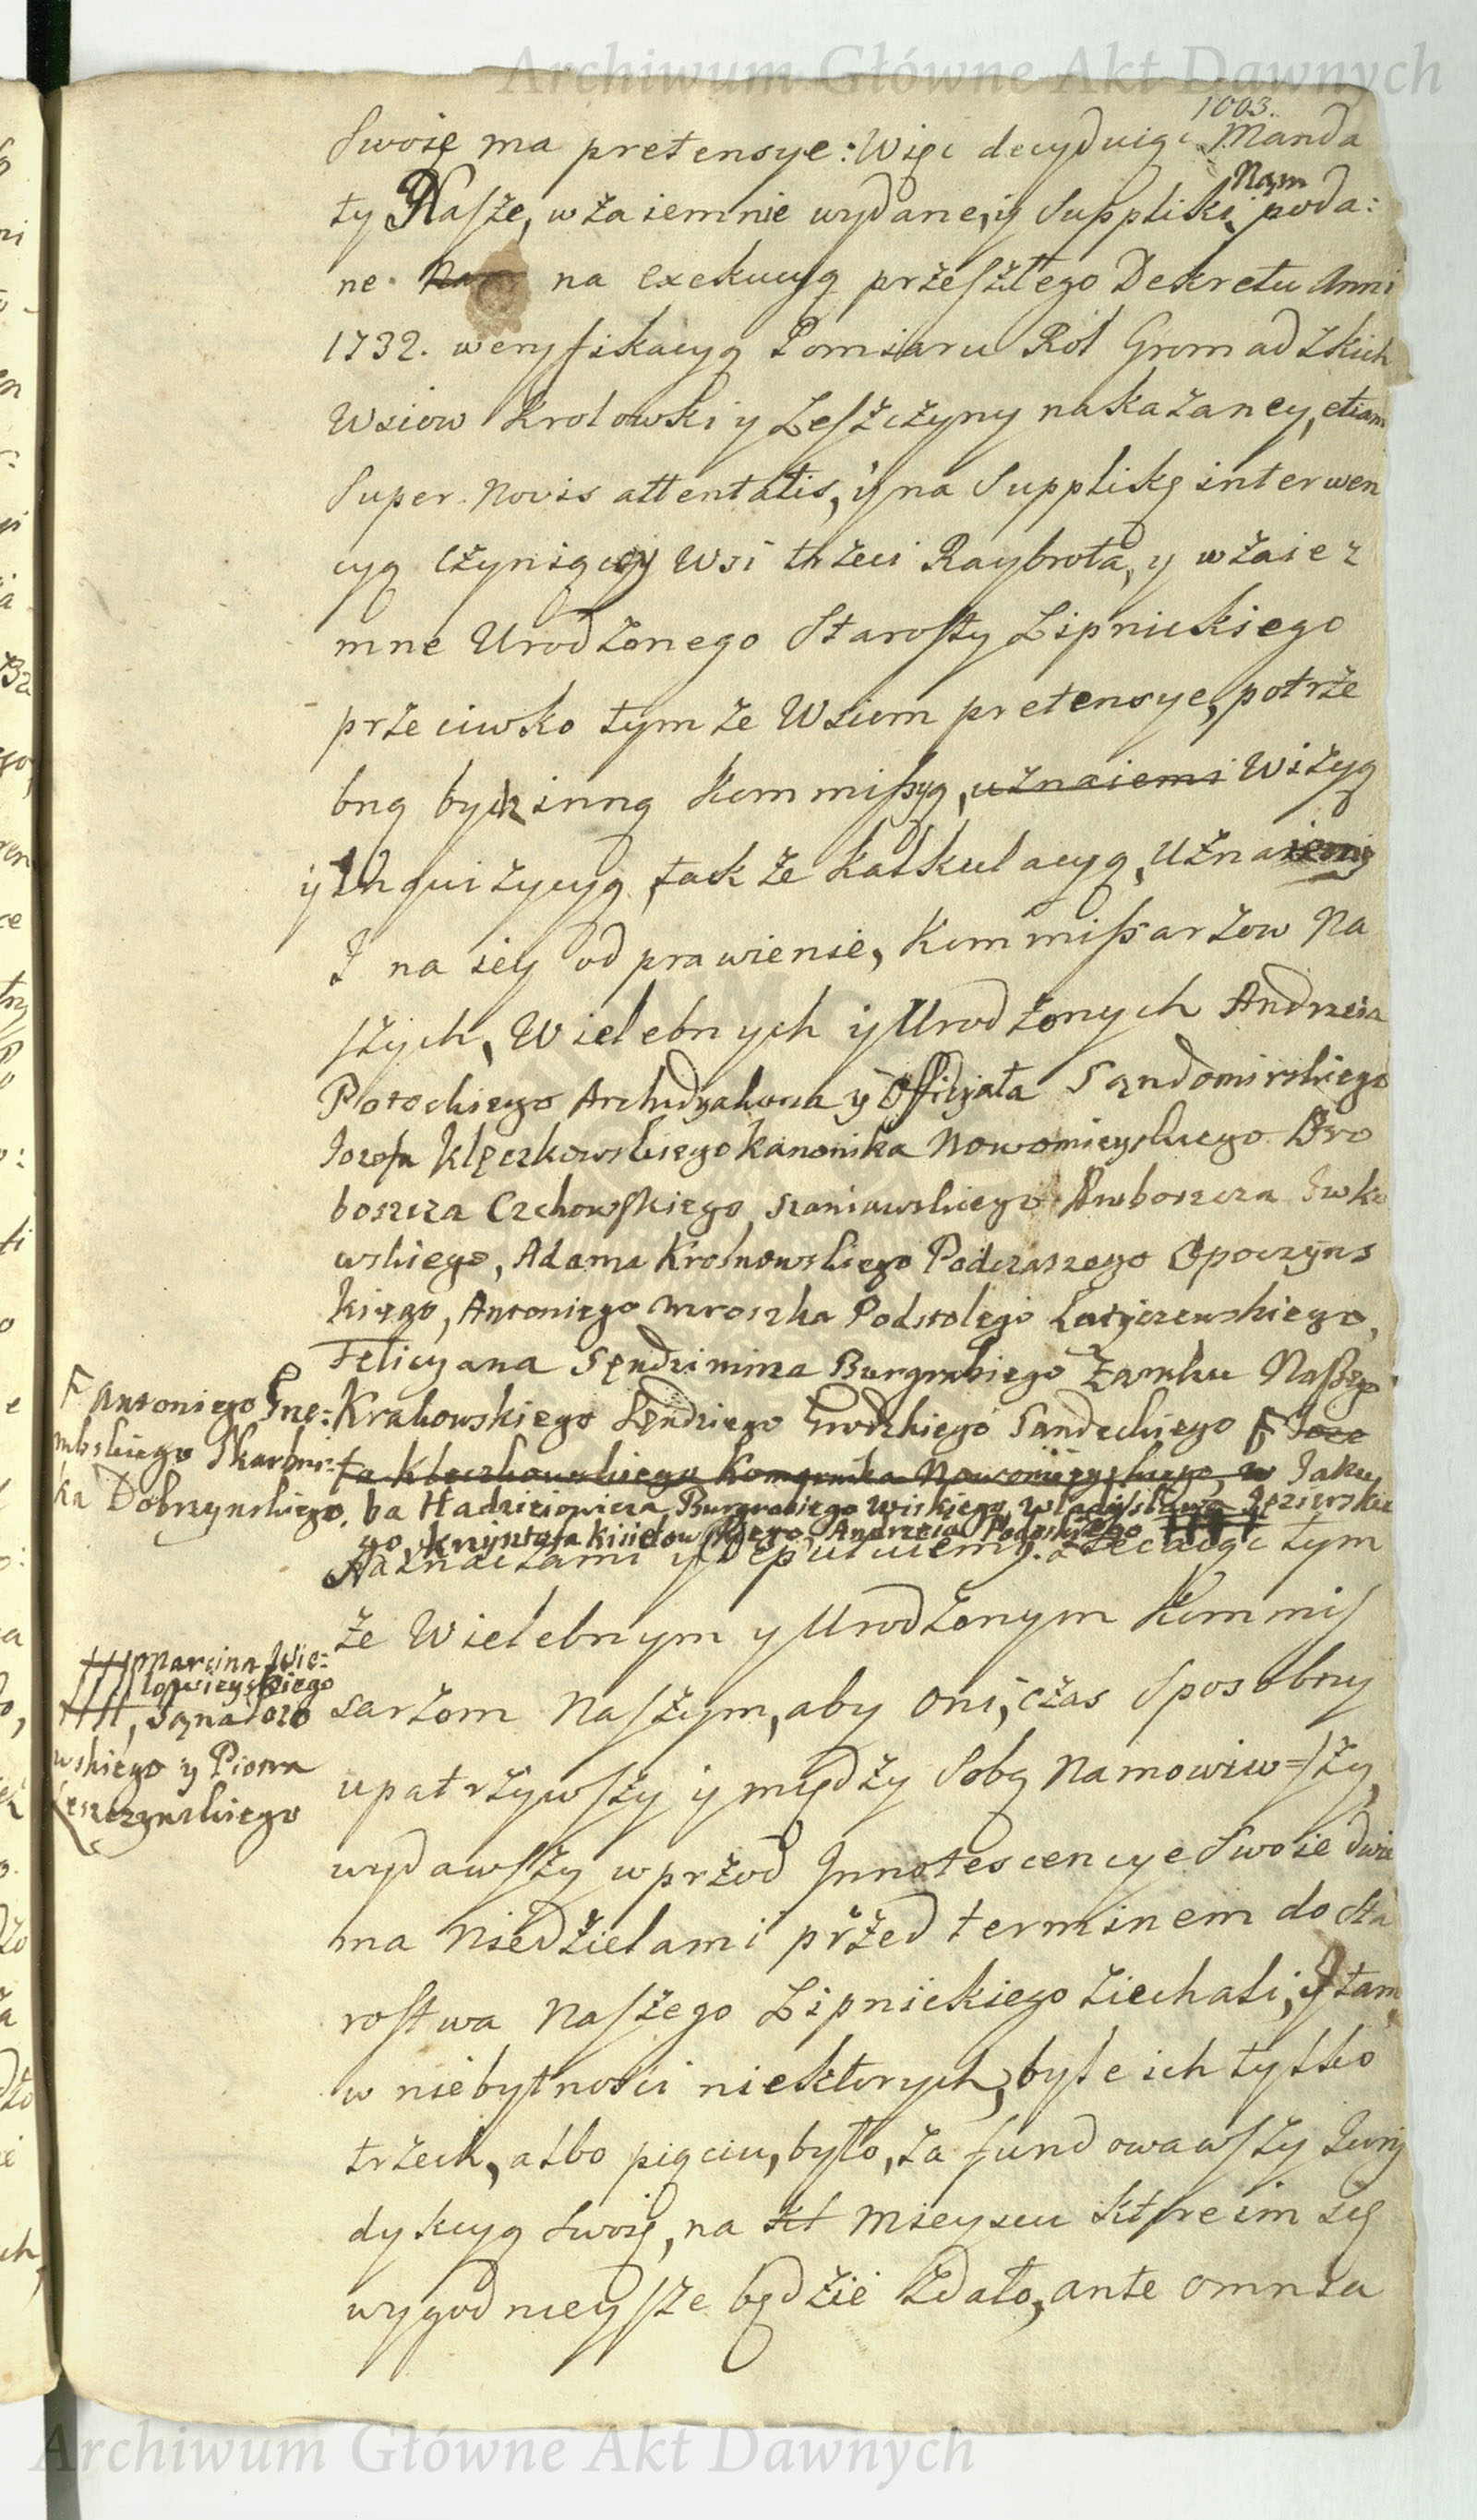 Archiwum Główne Akt Dawnych
1003.
Swoię ma pretensye: Więc decyduiąc Manda
ty Nasże, wzaiemnie wydane, iy Suppliki Nąm poda:
ne. Nam na exekucyą przeszłego Dekretu Anni
1732. weryfikacyą Pomiaru Ról Gromadzkich
Wsiow Krolowki y Leszczyny nakazaney, etiam
Super Novis attentatis, iy na Supplikę interwen
cyą czyniącey Wsi trzeci Raybrota, y wzaie z
mne Urodzonego Starosty Lipnickiego
przeciwko tymze Wsiom pretensye, potrze
bną bydz inną Kommissyą, uznaiemi Wizyą
iy Inquizycyą, takze Kalkulacyą, Uznaiemy
I na iey odprawienie, Kommissarzow Na
szych, Wielebnych iy Urodzonych Andrzeia
Potockiego Archidyakona y Officyała Sąndomirskiego
Jozefa Klęczkowskiego Kanonika Nowomieyskiego Pro
boszcza Czchowskiego, Szaniawskiego Proboszcza Iwko
wskiego, Adama Krosnowskiego Podczaszego Opoczyns
kiego, Antoniego Mroszka Podstolego Latyczewskiego,
Felicyana Sęndzimira Burgrabiego Zamku Naszego
Krakowskiego Sęndziego Grodzkiego Sandeckiego F Joze
F Antoniego Gre:
mbskiego Skarbni:
ka Dobrzynskiego.
fa Kleczkowskiego Komornika Nowomieyskiego, w Jaku
ba Hadziewicza Burgrabiego Wiskiego, Władysława Jezierskie
go, Krzysztofa Kisielowskiego Andrzeia Podoskiego
Naznaczamy y Deputuiemy. Zlecaiąc tym
ze Wielebnym y Urodzonym Kommis
Marcina Wie:
lowieyskiego
, Sąnatoro
wskiego y Piotra
Leszczynskiego
sarzom Naszym, aby oni, czas Sposobny
upatrzywszy iy między Sobą Namowiwszy,
wydawszy wprzod Innotescencye Swoie dwie
ma Niedzielami przed terminem do Sta
rostwa Naszego Lipnickiego ziechali, iy tam
w niebytnosci niektorych, byle ich tylko
trzech, albo pięciu, było, zafundowawszy Jury
dykcyą Swoię, na kt Mieyscu ktore im się
wygodnieysze będzie zdało, ante omnia
Archiwum Główne Akt Dawnych